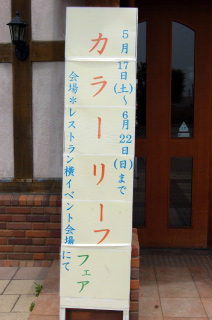 5月17日(土)〜6月22日(日)まで
カラーリーフ
フェア
会場＊レストラン横イベント会場にて